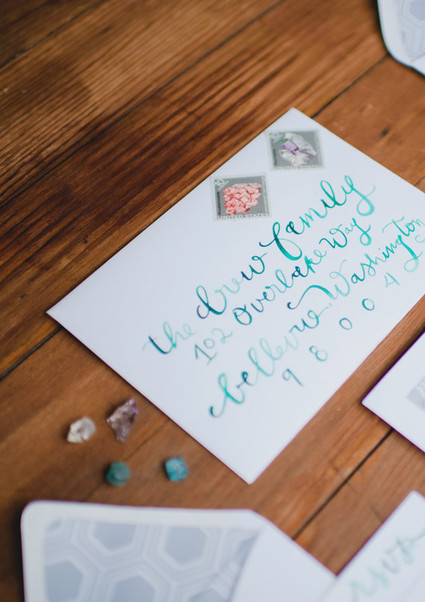 the drew family
102 overlake way
bellevue Washington
98004
rsvp